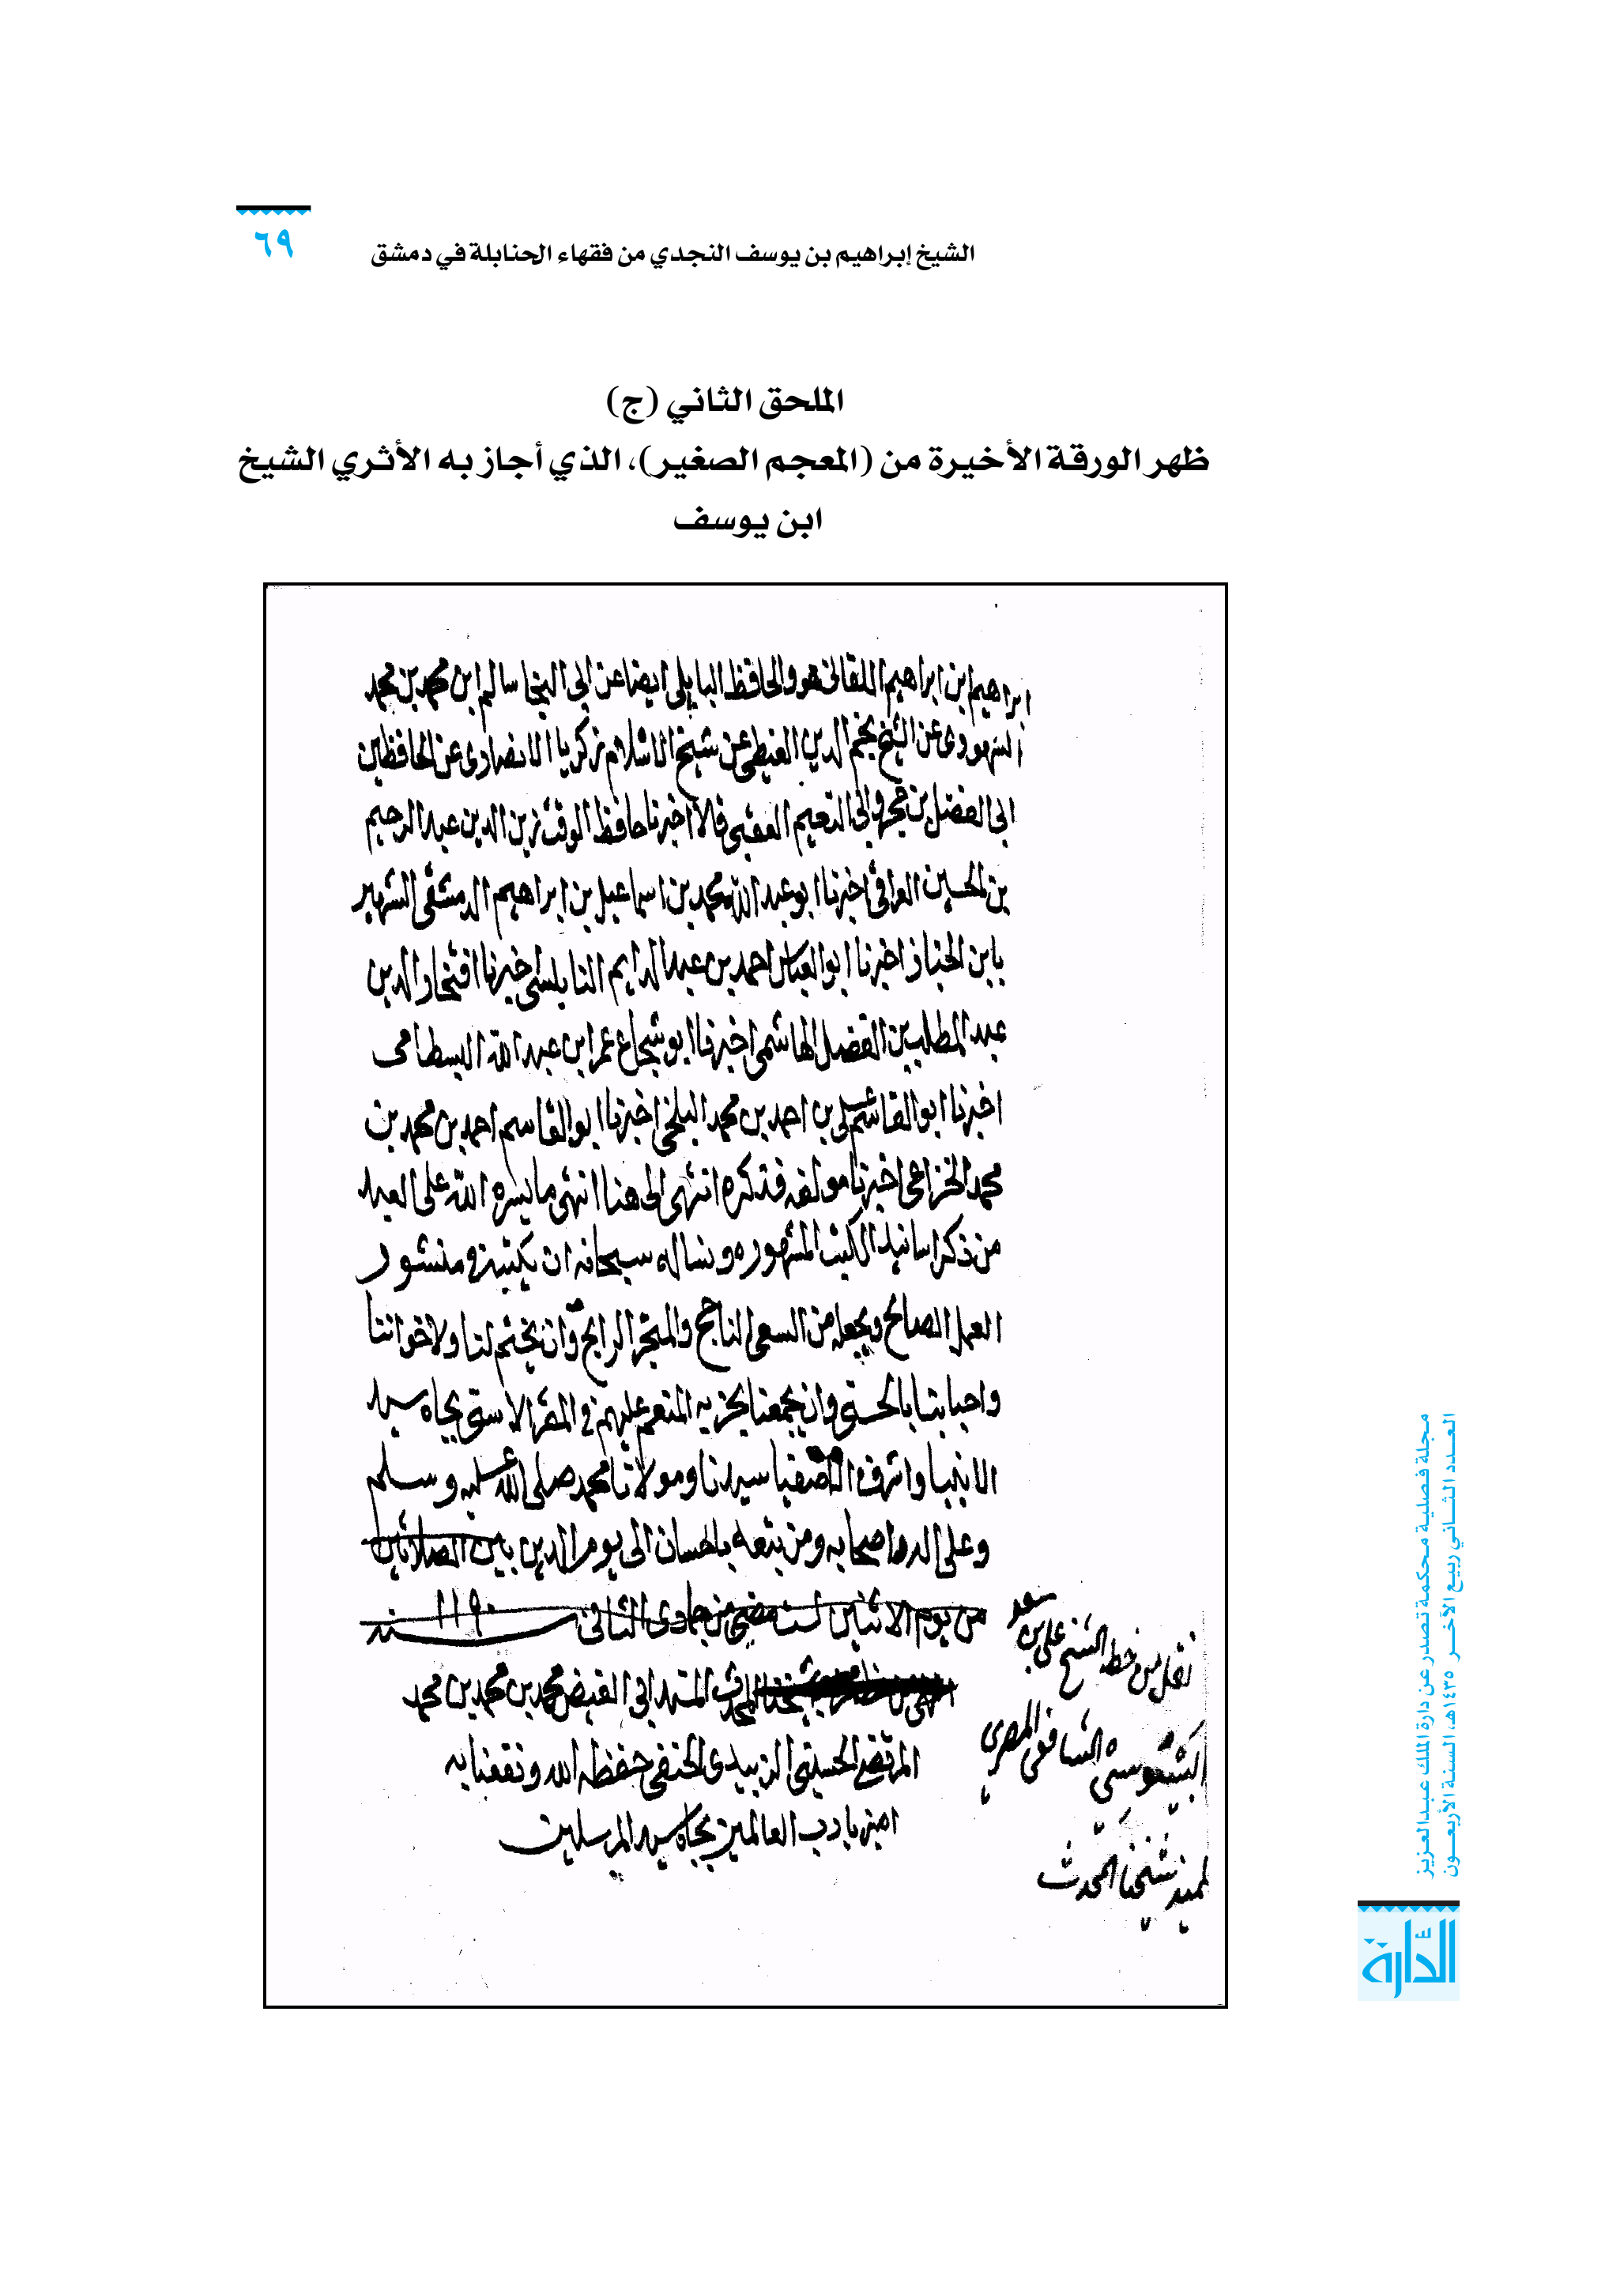 ٦٩
الشيخ إبراهيم بن يوسف النجدي من فقهاء الحنابلة في دمشق
الملحق الثاني (ج)
ظهر الورقة الأخيرة من (المعجم الصغير)، الذي أجاز به الأثري الشيخ
ابن يوسف
ابراهيم ابن ابراهيم اللقاني هو والحافظ البابلي ايضا عن ابى النجا سالم ابن محمد بن محمد
السنهورى عن الشيخ نجم الدين الغيطى عن شيخ الاسلام زكريا الانصارى عن الحافظين
ابى الفضل بن حجر وابى النعيم العقبى قالا اخبرنا حافظ الوقت زين الدين عبد الرحيم
بن الحسين العراقى اخبرنا ابو عبد الله محمد بن اسماعيل بن ابراهيم الدمشقى الشهير
بابن الخباز اخبرنا ابو العباس احمد بن عبد الدايم النابلسى اخبرنا افتخار الدين
عبد المطلب بن الفضل الهاشمى اخبرنا ابو شجاع عمر ابن عبد الله البسطامى
اخبرنا ابو القاسم على بن احمد بن محمد البلخى اخبرنا ابو القاسم احمد بن محمد بن
محمد الخزاعى اخبرنا مولفه فذكره انتهى الى هنا انتهى ما يسره الله على العبد
من ذكر اسانيد الكتب المشهوره ونساله سبحانه ان يكتبه فى منشور
العمل الصالح ويجعله من السعى الناجح والمتجر الرابح وان يختم لنا ولاخواننا
واحبابنا بالحسنى وان يجمعنا بحزبه المنعم عليهم فى المقر الاسنى بجاه سيد
الانبيا واشرف الاصفيا سيدنا ومولانا محمد صلى الله عليه وسلم
وعلى اله واصحابه ومن تبعه باحسان الى يوم الدين بين الصلاتين
من يوم الاثنين لست مضى من جمادى الثانى سنة ١١٩٠
شيخنا المحدث المسند ابى الفيض محمد بن محمد بن محمد
المرتضى الحسينى الزبيدى الحنفى حفظه الله ونفعنا به
امين يا رب العالمين بجاه سيد المرسلين
نقل من خط الشيخ على بن سعد
الشافعى المصرى
تلميذ شيخنا المحدث
مجلة فصلية محكمة تصدر عن دارة الملك عبدالعزيز
العدد الثاني ربيع الآخر ١٤٣٥هـ، السنة الأربعون
الدارة